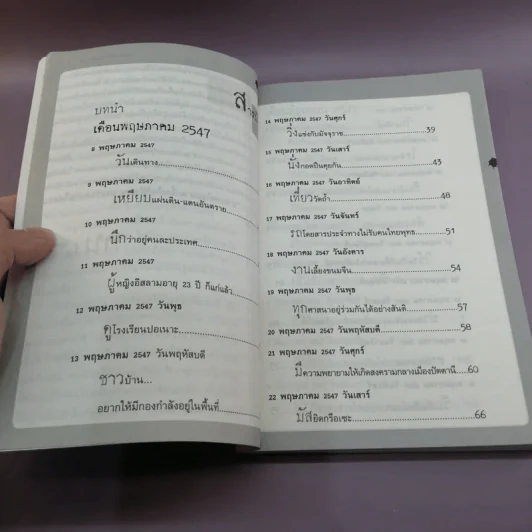 บทนำ
เดือนพฤษภาคม 2547
8 พฤษภาคม 2547
วันเดินทาง
9 พฤษภาคม 2547
เหยียบแผ่นดิน-แดนอันตราย
10 พฤษภาคม 2547
นึกว่าอยู่คนละประเทศ
11 พฤษภาคม 2547
ผู้หญิงอิสลามอายุ 23 ปี ก็แก่แล้ว
12 พฤษภาคม 2547 วันพุธ
ดูโรงเรียนปอเนาะ
13 พฤษภาคม 2547 วันพฤหัสบดี
ชาวบ้าน...
อยากให้มีกองกำลังอยู่ในพื้นที่
14 พฤษภาคม 2547 วันศุกร์
วิ่งแข่งกับมัจจุราช 39
15 พฤษภาคม 2547 วันเสาร์
นั่งกอดปืนคุยกัน 43
16 พฤษภาคม 2547 วันอาทิตย์
เที่ยววัดถ้ำ 48
17 พฤษภาคม 2547 วันจันทร์
รถโดยสารประจำทางไม่รับคนไทยพุทธ 51
18 พฤษภาคม 2547 วันอังคาร
งานเลี้ยงขนมจีน 54
19 พฤษภาคม 2547 วันพุธ
ทุกศาสนาอยู่ร่วมกันได้อย่างสันติ 57
20 พฤษภาคม 2547 วันพฤหัสบดี 58
21 พฤษภาคม 2547 วันศุกร์
มีความพยายามให้เกิดสงครามกลางเมืองปัตตานี 60
22 พฤษภาคม 2547 วันเสาร์
มัสยิดกรือเซะ 66